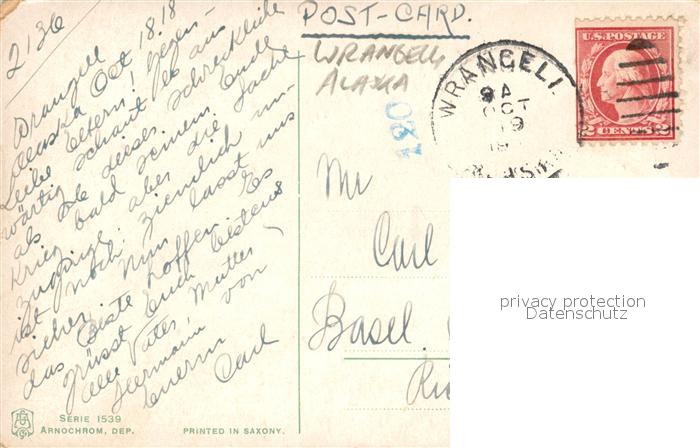 2136
POST-CARD.
WRANGELL
ALASKA
U.S. POSTAGE
2 CENTS 2
WRANGELL
9 A
OCT
19
180
Wrangell
Alaska Oct 18. 18
Liebe Eltern! Gegen-
wärtig schaut es aus
als ob dieser schreckliche
Krieg bald seinem Ende
zuginge, aber die Sache
ist noch ziemlich un-
sicher. Nun lasst uns
das Beste hoffen. Es
grüsst Euch bestens
alle Vater, Mutter
Hermann von
Euerm Carl
Mr
Carl
Basel.
privacy protection
Datenschutz
SERIE 1539
ARNOCHROM, DEP.
PRINTED IN SAXONY.